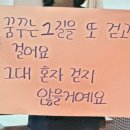 꿈꾸는 그길을 또 걷고
걸어요
그대 혼자 걷지
않을거예요